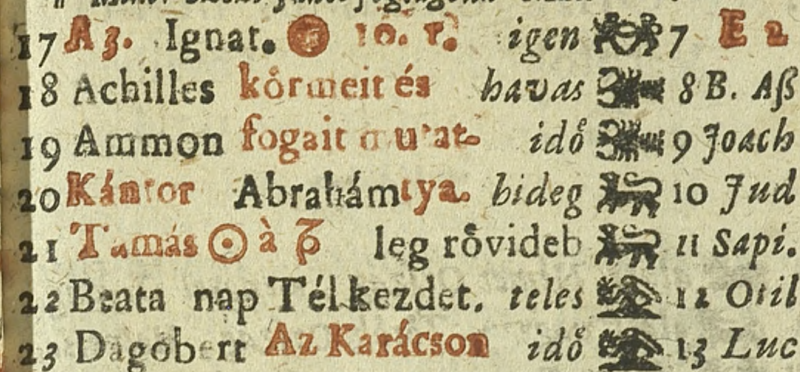 17 Az. Ignat. 10. r. igen 7 E 2
18 Achilles kőrmeit és havas 8 B. Aß
19 Ammon fogait mutat- idő 9 Joach
20 Kántor Abrahám tya. hideg 10 Jud
21 Tamás ☉ à leg rővideb 11 Sapi.
22 Beata nap Tél kezdet. teles 12 Otil
23 Dagobert Az Karácson idő 13 Luc